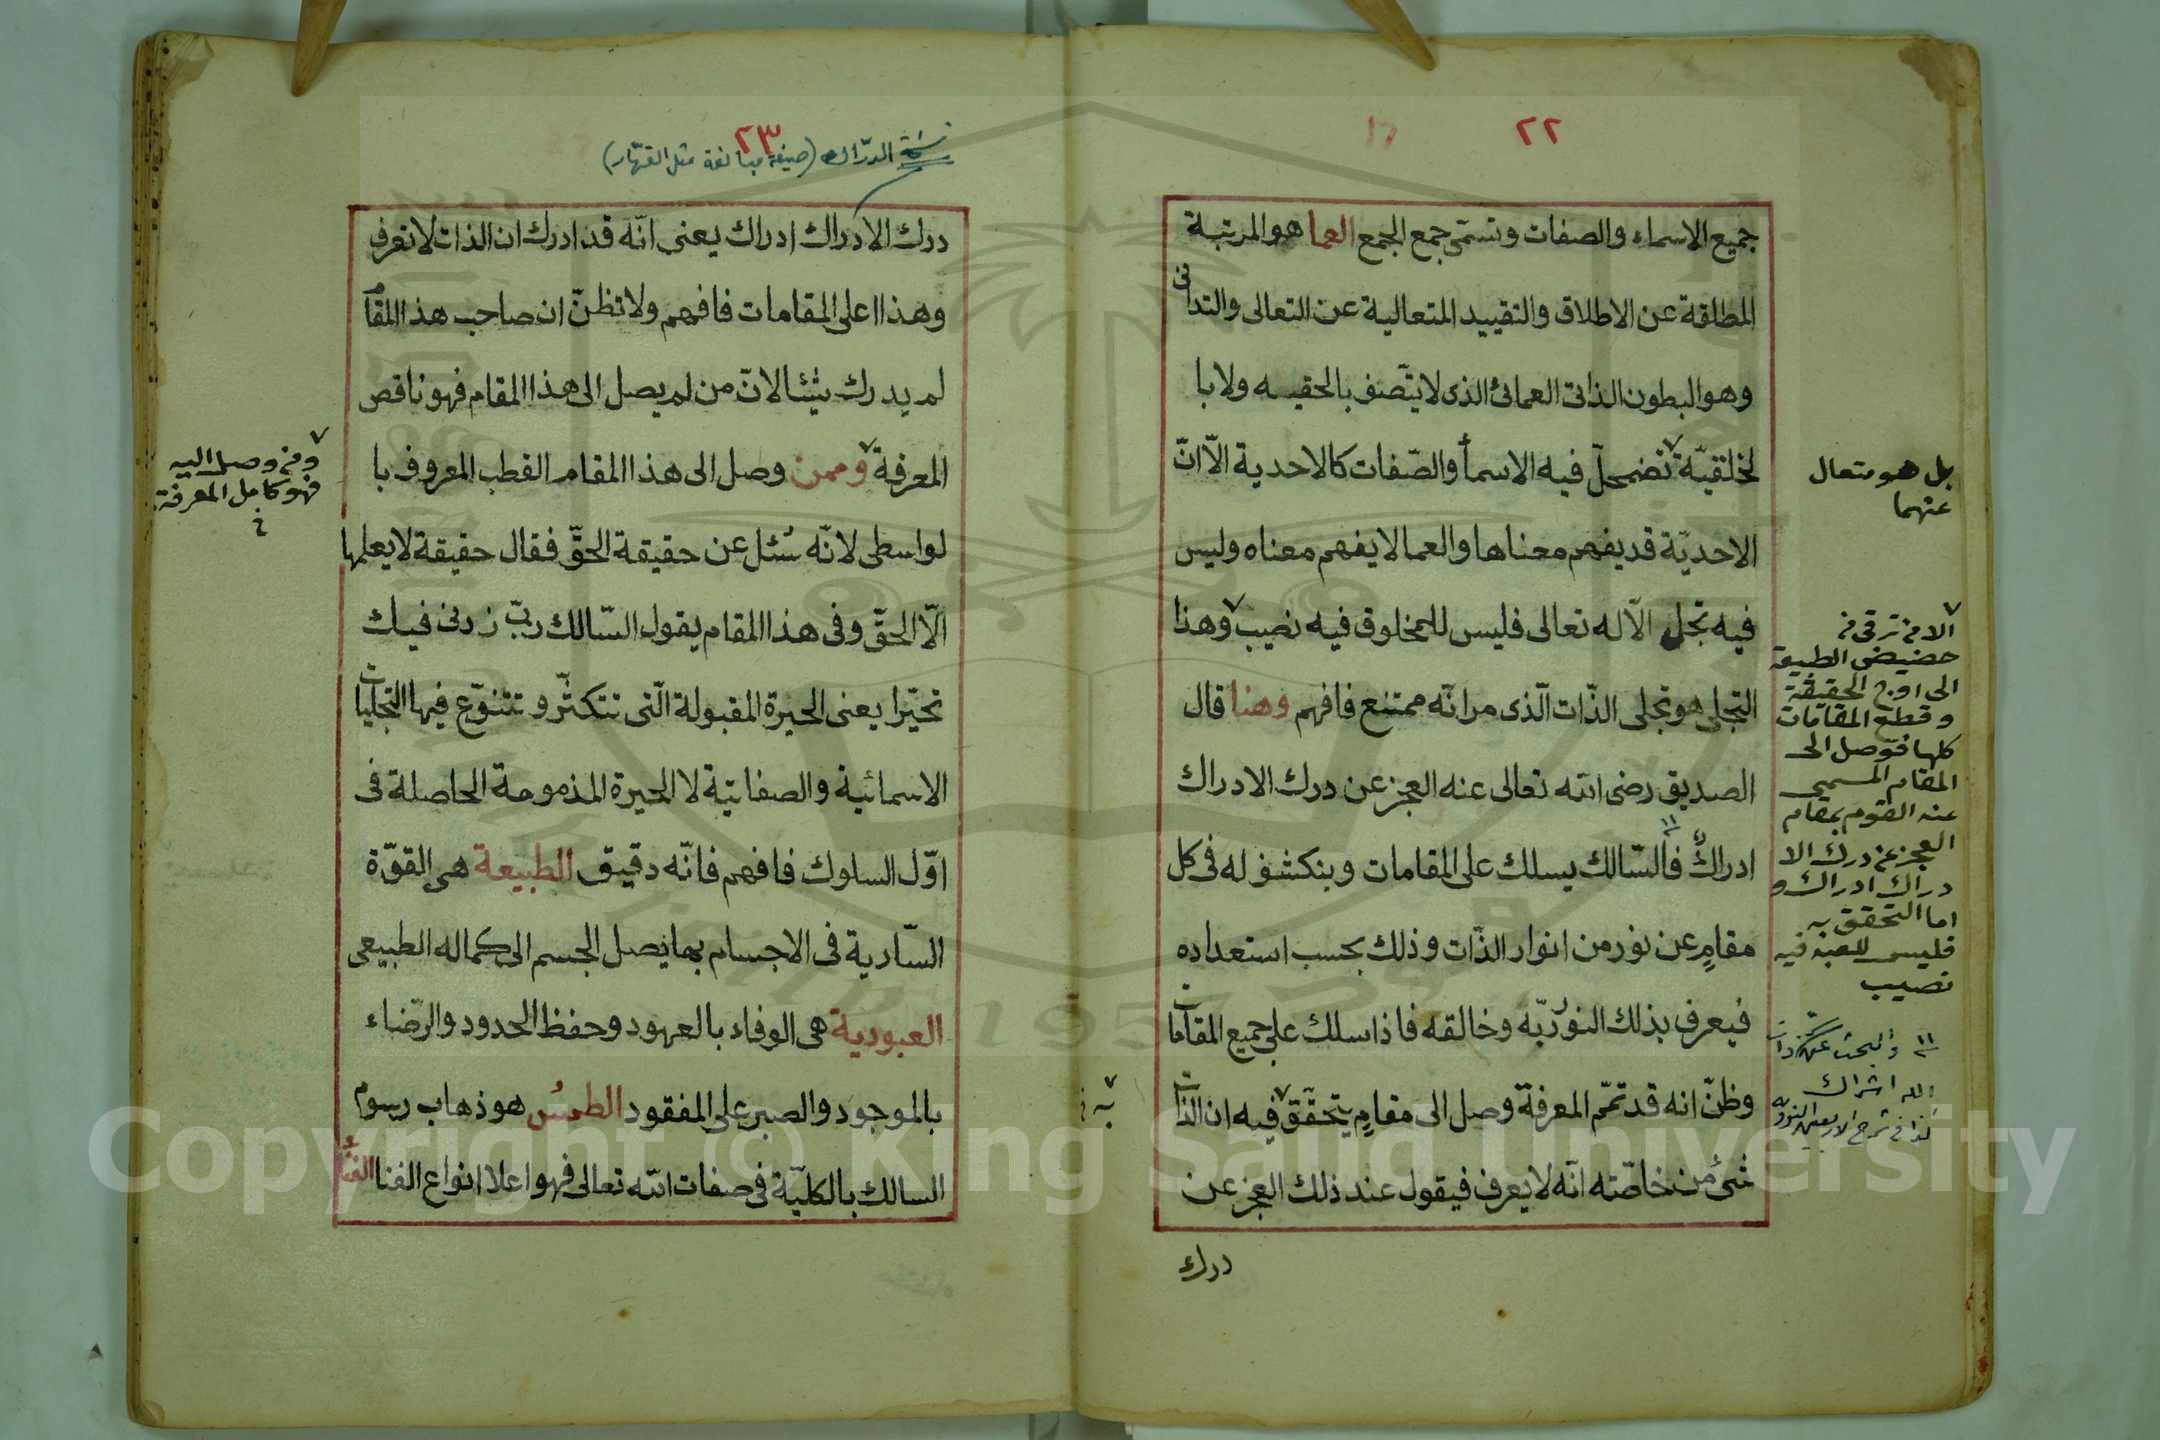 ٢٢
جميع الاسماء والصفات وتسمّى جمع الجمع العما هو المرتبة
المطلقة عن الاطلاق والتقييد المتعالية عن التعالى والتدانى
وهو البطون الذاتى العمائى الذى لا يتّصف بالحقيه ولا با
لخلقيّة تضمحلّ فيه الاسمأ والصّفات كالاحدية الّا انّ
الاحديّة قد يفهم معناها والعما لا يفهم معناه وليس
فيه تجل الّا له تعالى فليس للمخلوق فيه نصيب وهذا
التجلى هو تجلى الذّات الّذى مر انّه ممتنع فافهم وهنا قال
الصديق رضى الله تعالى عنه العجز عن درك الادراك
ادراك فالسّالك يسلك على المقامات وينكشف له فى كل
مقامٍ عن نور من انوار الذّات وذلك بحسب استعداده
فيعرف بذلك النور ربّه وخالقه فاذا سلك على جميع المقامات
وظنّ انه قد تمّم المعرفة وصل الى مقامٍ يتحقّق فيه ان الذات
شئ من خاصّته انّه لا يعرف فيقول عند ذلك العجز عن
درك
بل هو متعال
عنهما
الا من ترقى من
حضيض الطبيعة
الى اوج الحقيقة
وقطع المقامات
كلها فوصل الى
المقام المسمى
عند القوم بمقام
العجز عن درك الا
دراك ادراك و
اما التحقق به
فليس للعبد فيه
نصيب
والبحث عن ذات
الله اشراك
كذا فى شرح الاربعين النووية
٢٣
نسخة الدرّاك (صيغة مبالغة مثل القهّار)
درك الادراك ادراك يعنى انّه قد ادرك ان الذات لا تعرف
وهذا اعلى المقامات فافهم ولا تظنّ ان صاحب هذا المقام
لم يدرك شيئا لانّ من لم يصل الى هذا المقام فهو ناقص
المعرفة وممن وصل الى هذا المقام القطب المعروف با
لواسطى لانّه سُئل عن حقيقة الحقّ فقال حقيقة لا يعلمها
الّا الحقّ وفى هذا المقام يقول السّالك ربّ زدنى فيك
تحيّرا يعنى الحيرة المقبولة الّتى تتكثّر وتتنوّع فيها التجليات
الاسمائية والصفاتيّة لا الحيرة المذمومة الحاصلة فى
اوّل السلوك فافهم فانّه دقيق الطبيعة هى القوّة
السّارية فى الاجسام بها يصل الجسم الى كماله الطبيعى
العبودية هى الوفاء بالعهود وحفظ الحدود والرّضاء
بالموجود والصبر على المفقود الطمسُ هو ذهاب رسوم
السالك بالكليّة فى صفات الله تعالى فهو اعلا انواع الفنا الفنأُ
ومن وصل اليه
فهو كامل المعرفة
به
Copyright © King Saud University
1957